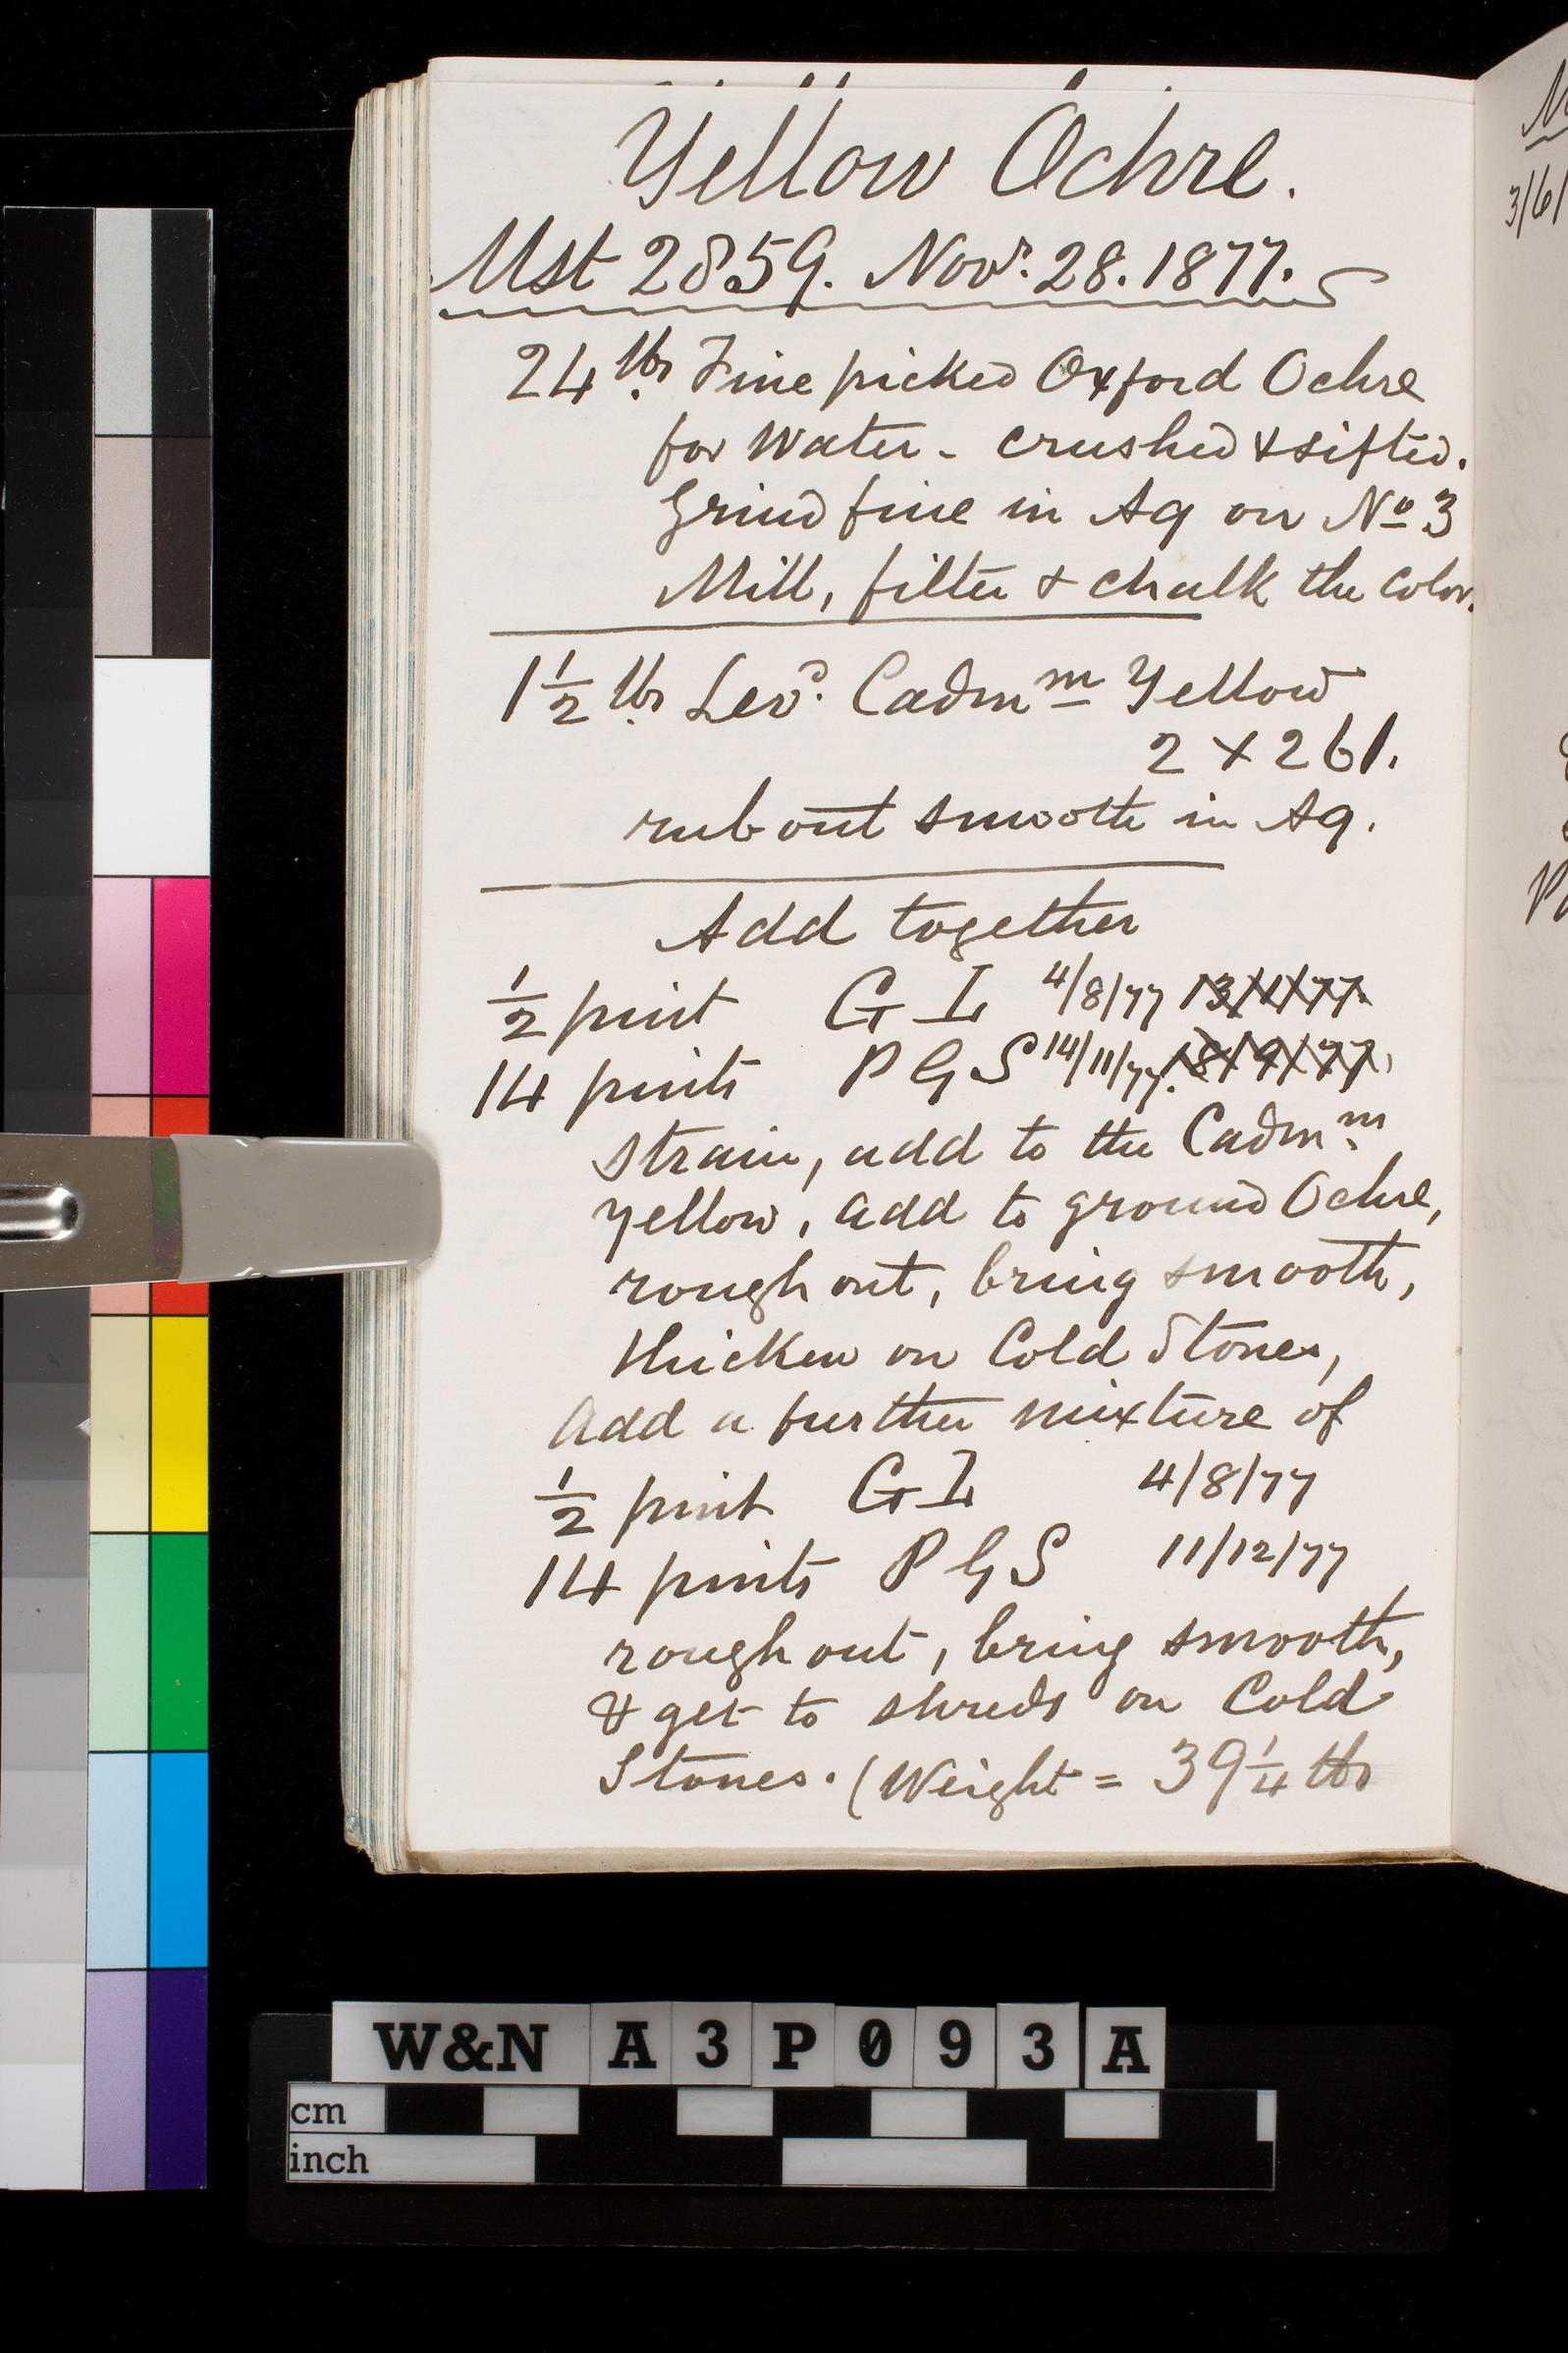 Yellow Ochre.
Mst 2859. Novr. 28. 1877.
24 lbs Fine picked Oxford Ochre
for Water - crushed & sifted.
Grind fine in Aq on No 3
Mill, filter & chalk the color.
1 1/2 lbs Levd. Cadmm Yellow
2 X 261.
rub out smooth in Aq.
Add together
1/2 pint G I 4/8/77 13/1/77.
14 pints P G S 14/11/77. 18/9/77.
strain, add to the Cadmm
yellow, add to ground Ochre,
rough out, bring smooth,
thicken on Cold Stones,
Add a further mixture of
1/2 pint G I 4/8/77
14 pints P G S 11/12/77
rough out, bring smooth,
& get to shreds on Cold
Stones. (Weight = 39 1/4 lbs
3/6/
W&N A3P093A
cm
inch